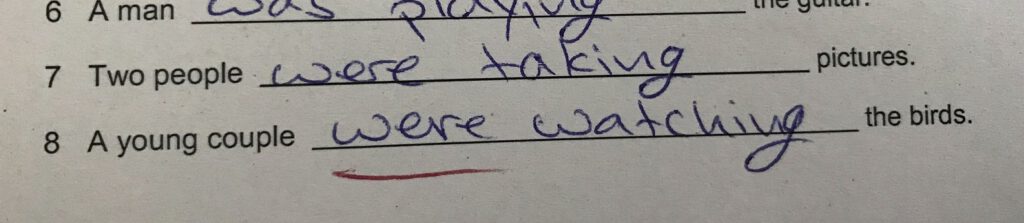 6 A man was playing the guitar.
7 Two people were taking pictures.
8 A young couple were watching the birds.